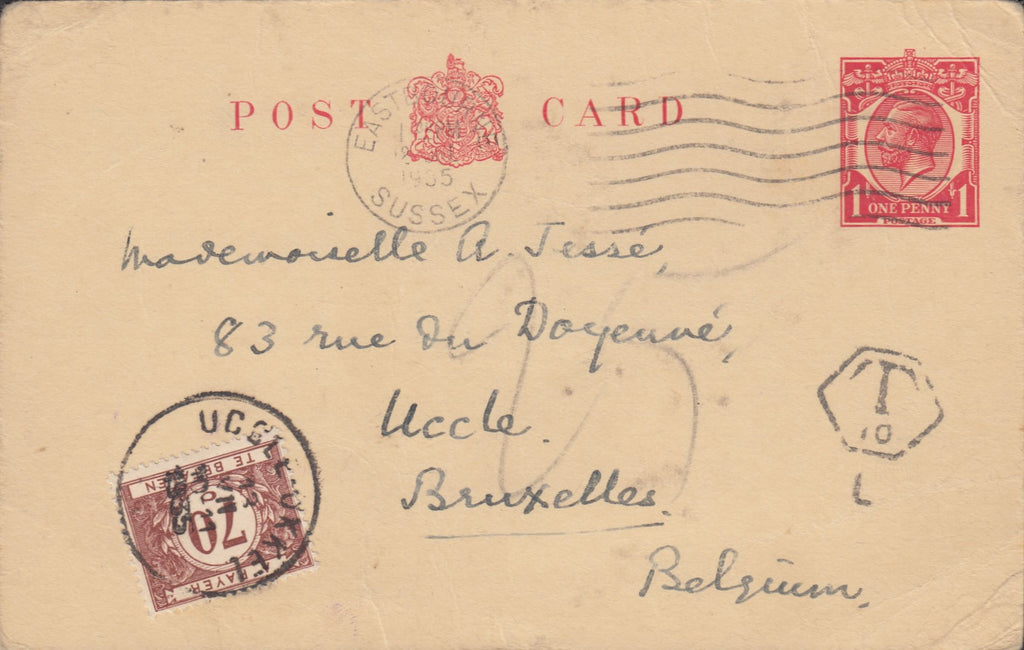 POST CARD
EASTBOURNE
1935
SUSSEX
1 ONE PENNY 1
POSTAGE
Mademoiselle A. Tessé,
83 rue du Doyenné,
Uccle.
Bruxelles.
Belgium.
T
10
L
UCCLE UKKEL
1935
TE BETALEN
70
A PAYER